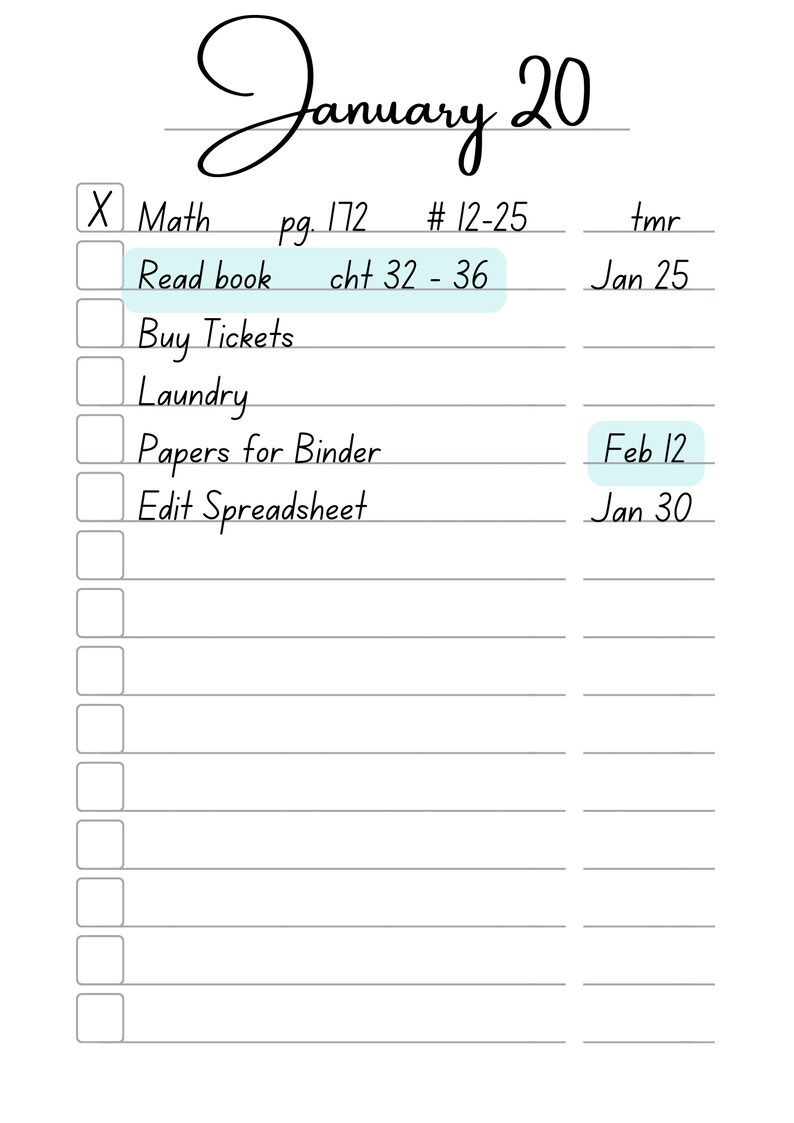 January 20
X Math pg. 172 # 12-25 tmr
Read book cht 32 - 36 Jan 25
Buy Tickets
Laundry
Papers for Binder Feb 12
Edit Spreadsheet Jan 30